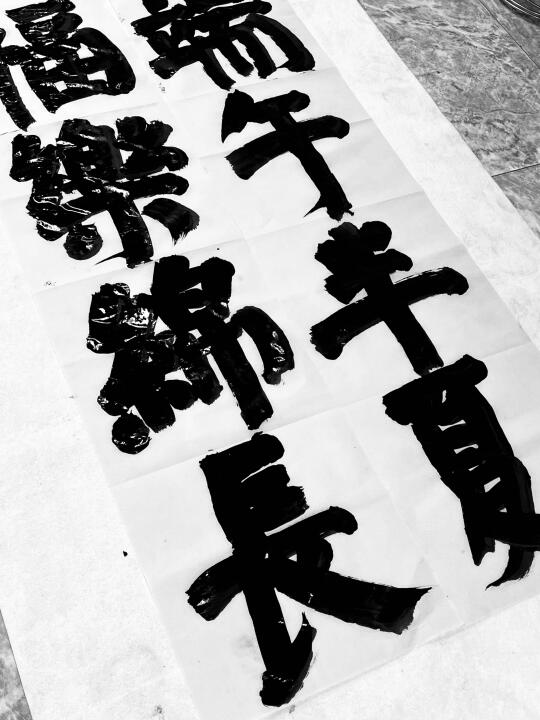 端午半夏
福樂綿長